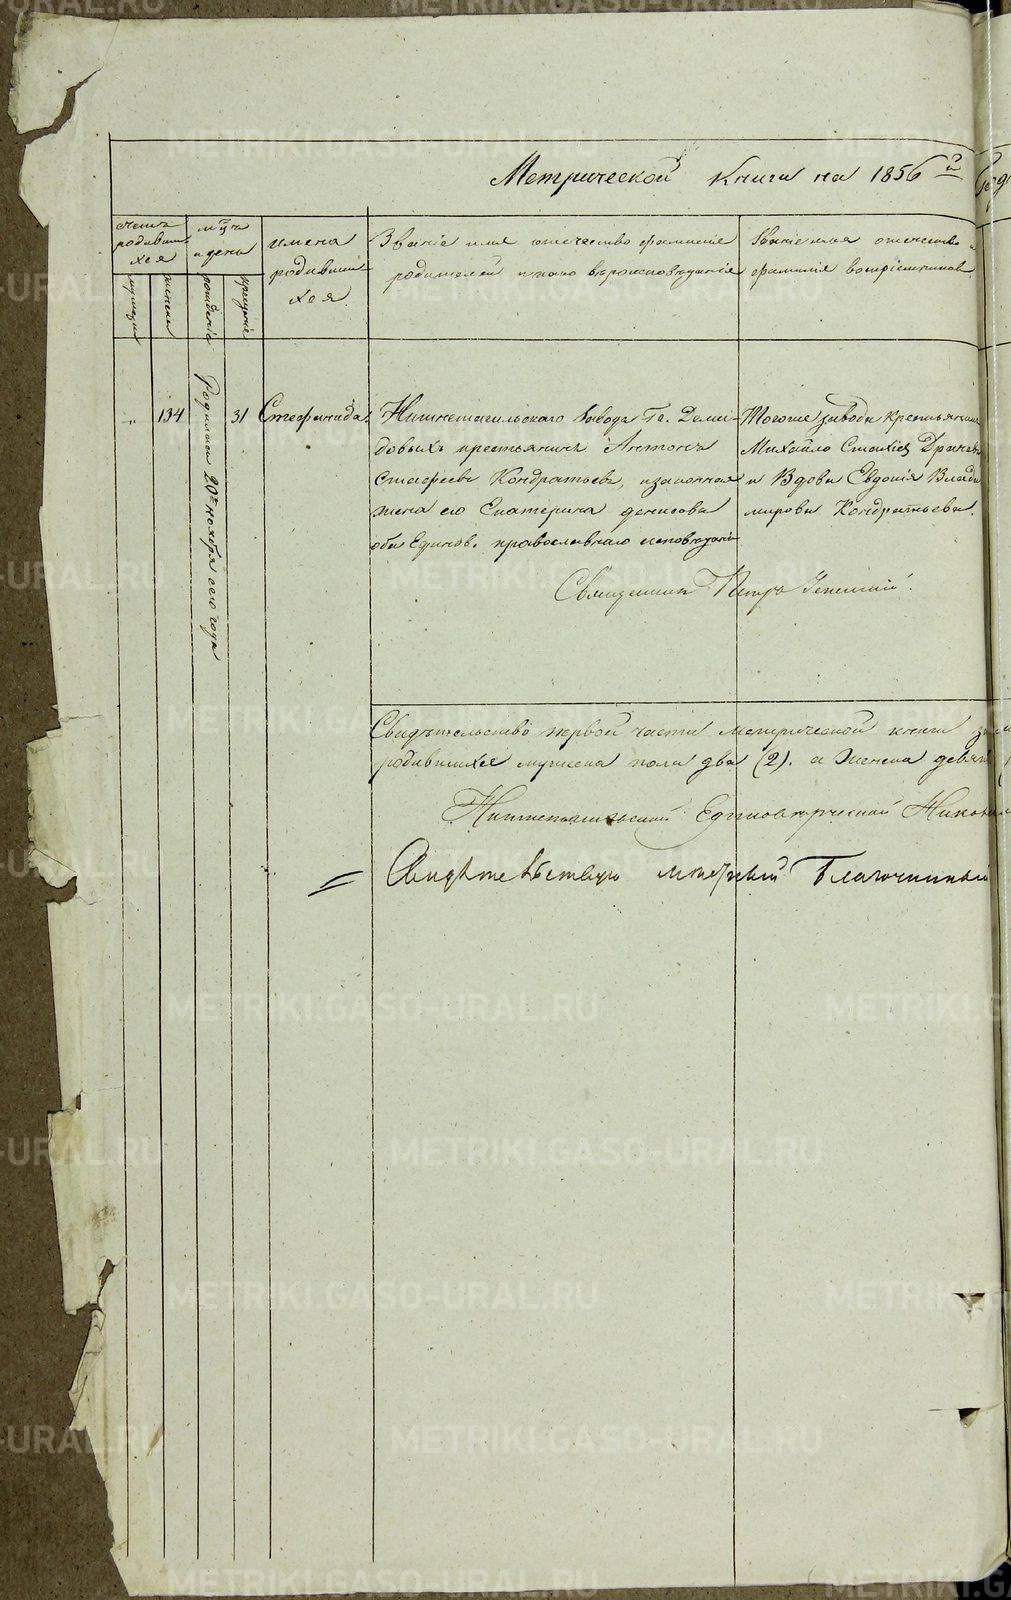 Метрической Книги на 1856й Год
Счетъ родивших хся
Мцъ и день
имена родивши хся
Званіе имя отечество фамиліе
родителей и какого вероисповеданія
Званіе имя отечество и
фамилія воспріемниковъ
мужеска
женска
рожденіе
крещеніе
"
134
Родилась 20го ноября сего года
31
Стефанида.
Нижнетагильскаго Завода Гг. Деми-
довыхъ крестьянинъ Антонъ
Стафеевъ Кондратьевъ, и законная
жена его Екатерина Денисова
оба Единов. православнаго исповеданія
Тогоже завода крестьянинъ
Михайло
и Вдова Евдокія Влади
мирова Кондратьева.
Священникъ Петръ
Свидетельство первой части метрической книги
родившихся мужеска пола два (2). а Женска девят
Нижнетагильской Единоверческой Никола
= Свидетельствую местный Благочинный
METRIKI.GASO-URAL.RU